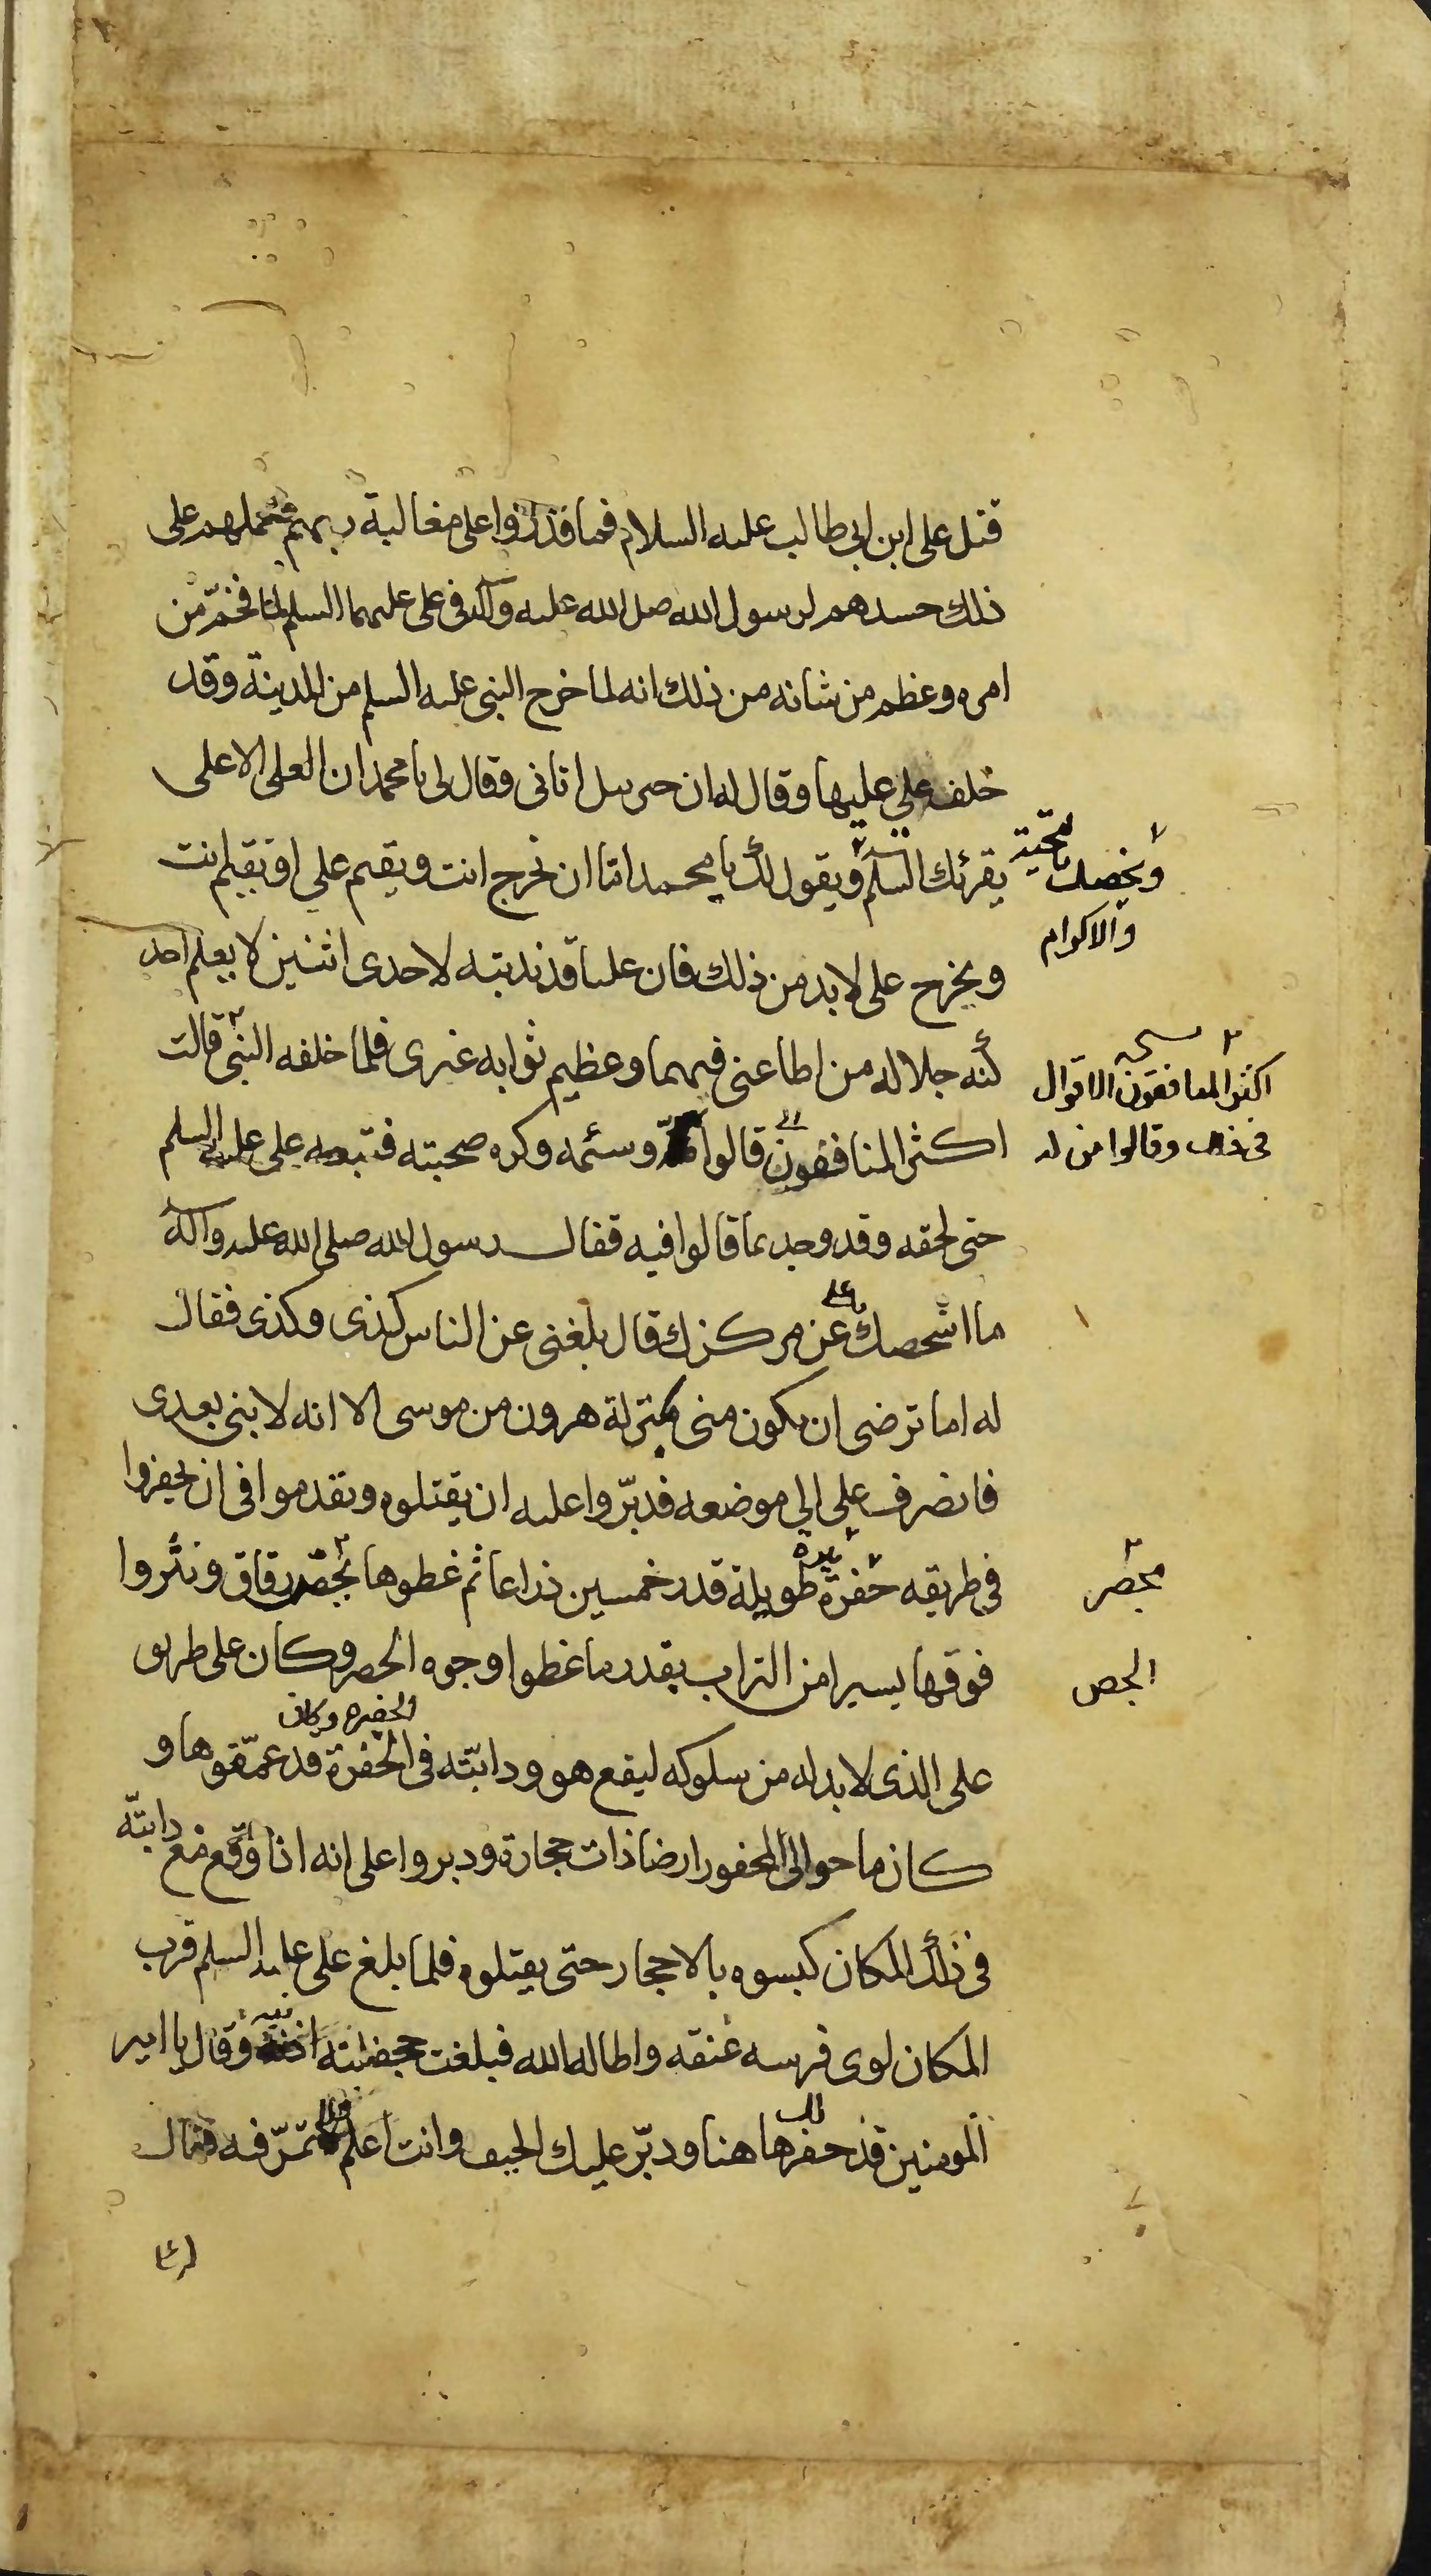 قتل على ابن ابى طالب عليه السلام فما قدروا على مغالبة ربهم فحملهم على
ذلك حسدهم لرسول الله صلى الله عليه وآله فى على عليهما السلم لما فخم من
امره وعظم من شانه من ذلك انه لما خرج النبى عليه السلم من المدينة وقد
خلف على عليها وقال له ان جبرئيل اتانى وقال لى يا محمد ان العلى الاعلى
يقرئك السلم ويقول لك يا محمد اما ان تخرج انت ويقيم على او تقيم انت
ويخصك بالتحية
والاكرام
ويخرج على لا بد من ذلك فان عليا قد ندبته لاحدى اثنتين لا يعلم احد
كنه جلاله من اطاعنى فيهما وعظيم ثوابه غيرى فلما خلفه النبى قالت
اكثر المنافقون قالوا وسئمه وكره صحبته فتبعه على عليه السلم
نسخه
اكثر المنافقون الاقوال
فى ذلك وقالوا من له
حتى لحقه وقد وجد بما قالوا فيه فقال رسول الله صلى الله عليه وآله
ما اشخصك يا على عن مركزك قال بلغنى عن الناس كذى وكذى فقال
له اما ترضى ان تكون منى بمنزلة هرون من موسى الا انه لا نبى بعدى
فانصرف على الى موضعه فدبروا عليه ان يقتلوه وتقدموا فى ان يحفروا
فى طريقه حفرة طويلة قدر خمسين ذراعا ثم غطوها بحصر رقاق ونثروا
بحصر
فوقها يسيرا من التراب بقدر ما غطوا وجوه الحصر وكان على طريق
الحص
على الذى لا بد له من سلوكه ليقع هو ودابته فى الحفرة قد عمقوها و
الحفيره وكان
كان ما حوالى المحفور ارضا ذات حجارة ودبروا على انه اذا وقع مع دابته
فى ذلك المكان كبسوه بالاحجار حتى يقتلوه فلما بلغ على عليه السلم قرب
المكان لوى فرسه عنقه واطاله الله فبلغت جحفلته اذنيه وقال يا امير
المومنين قد حفر ها هنا ودبر عليك الحيف وانت اعلم لا تمر فيه فقال
لك
له على